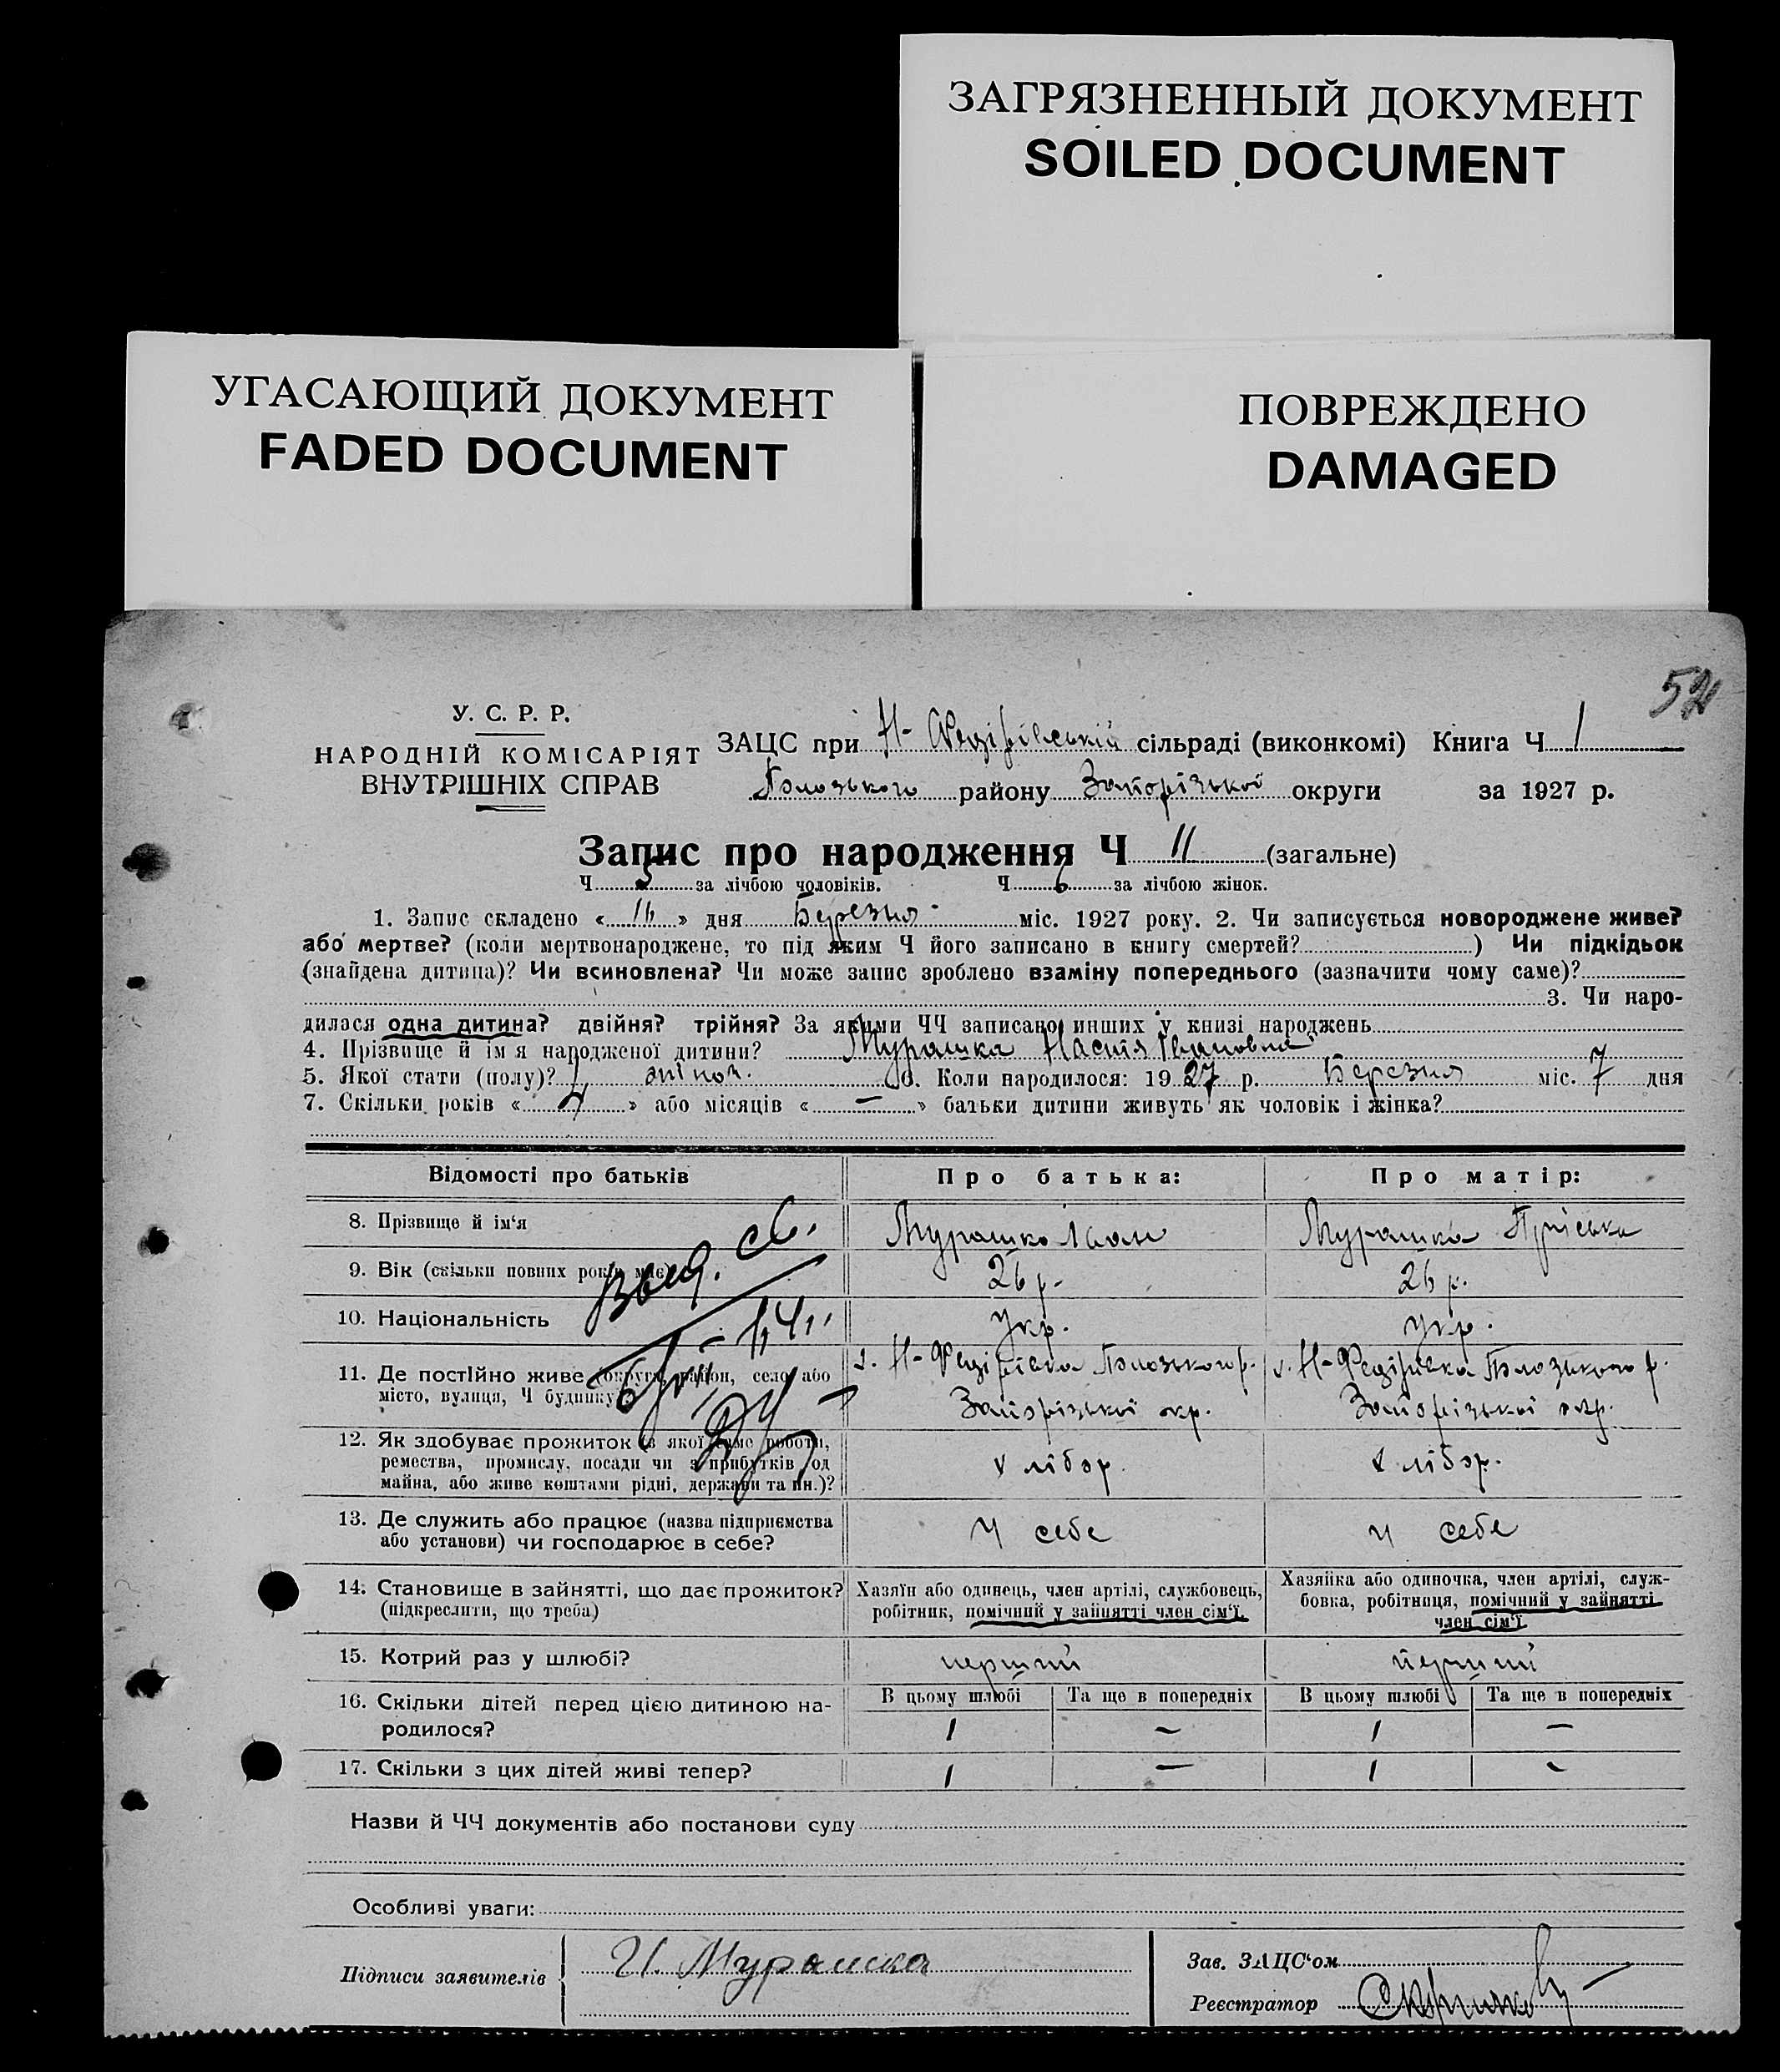 ЗАГРЯЗНЕННЫЙ ДОКУМЕНТ
SOILED DOCUMENT
УГАСАЮЩИЙ ДОКУМЕНТ
FADED DOCUMENT
ПОВРЕЖДЕНО
DAMAGED
52
У. С. Р. Р.
НАРОДНІЙ КОМІСАРІЯТ
ВНУТРІШНІХ СПРАВ
ЗАЦС при Н-Федірівській сільраді (виконкомі) Книга Ч 1
Пологського району Запорізької округи за 1927 р.
Запис про народження Ч 11 (загальне)
Ч 5 за лічбою чоловіків. Ч 6 за лічбою жінок.
1. Запис складено «16» дня Березня міс. 1927 року. 2. Чи записується новороджене живе?
або мертве? (коли мертвонароджене, то під яким Ч його записано в книгу смертей? ) Чи підкідьок
(знайдена дитина)? Чи всиновлена? Чи може запис зроблено взаміну попереднього (зазначити чому саме)?
3. Чи наро-
дилася одна дитина? двійня? трійня? За якими ЧЧ записано инших у книзі народжень
4. Прізвище й ім'я народженої дитини? Мурашка Настя Івановна
5. Якої стати (полу)? жіноч. 6. Коли народилося: 1927 р. Березня міс. 7 дня
7. Скільки років «4» або місяців «—» батьки дитини живуть як чоловік і жінка?
Відомості про батьків Про батька: Про матір:
8. Прізвище й ім'я Мурашко Іван Мурашка Пріська
9. Вік (скільки повних років має) 26 р. 26 р.
10. Національність укр. укр.
11. Де постійно живе (округа, район, село або с. Н-Федірівка р. с. Н-Федірівка р.
місто, вулиця, Ч будинку) Запорізької окр. Запорізької окр.
12. Як здобуває прожиток (з якої саме роботи,
ремества, промислу, посади чи з прибутків од хлібор. хлібор.
майна, або живе коштами рідні, держави та ин.)?
13. Де служить або працює (назва підприємства у себе у себе
або установи) чи господарює в себе?
14. Становище в зайнятті, що дає прожиток? Хазяїн або одинець, член артілі, службовець, Хазяйка або одиночка, член артілі, служ-
(підкреслити, що треба) робітник, помічний у зайнятті член сім'ї. бовка, робітниця, помічний у зайнятті
член сім'ї
15. Котрий раз у шлюбі? перший перший
16. Скільки дітей перед цією дитиною на- В цьому шлюбі Та ще в попередніх В цьому шлюбі Та ще в попередніх
родилося? 1 — 1 —
17. Скільки з цих дітей живі тепер? 1 — 1 -
Назви й ЧЧ документів або постанови суду
Особливі уваги:
Підписи заявителів И. Мурашка Зав. ЗАЦС'ом
Реєстратор